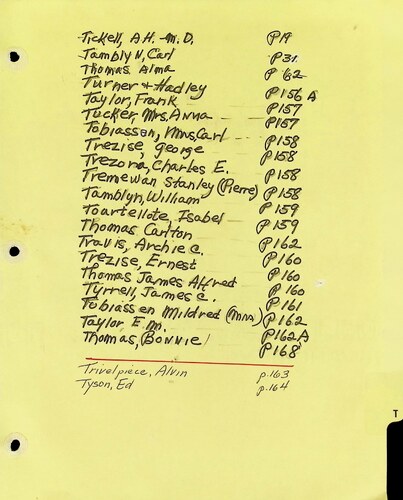 Tickell, A.H. M.D. P19
Tamblyn, Carl P31
Thomas Alma P62
Turner & Hadley P156 A
Taylor, Frank P157
Tucker, Mrs. Anna P157
Tobiasson, Mrs. Carl P158
Trezise, George P158
Trezona, Charles E. P158
Tremewan Stanley (Pierre) P158
Tamblyn, William P159
Toartellote, Isabel P159
Thomas Carlton P162
Travis, Archie C. P160
Trezise, Ernest P160
Thomas James Alfred P160
Tyrrell, James C. P161
Tobiassen Mildred (Mrs) P162
Taylor, E.M. P162A
Thomas, Bonnie P168
Trivelpiece, Alvin p.163
Tyson, Ed p.164
T